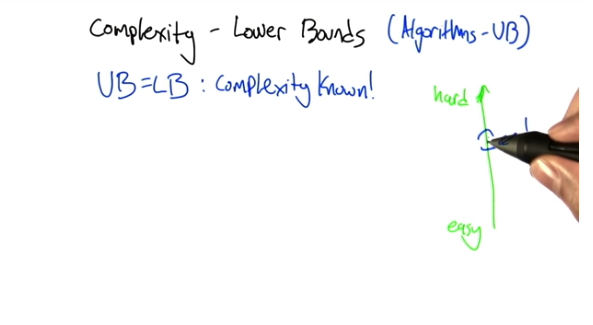 Complexity - Lower Bounds (Algorithms - UB)
UB=LB : Complexity Known!
hard
easy